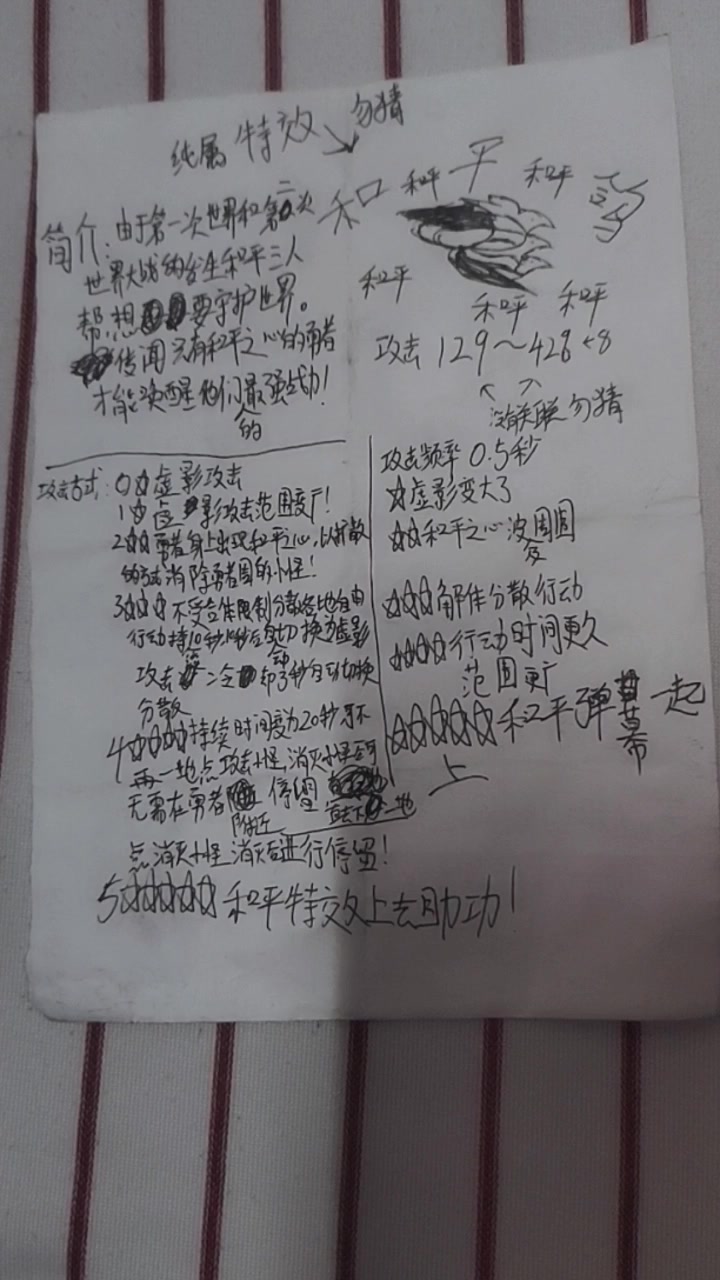 纯属 特效 勿猜
和 平 鸽
和平 和平
和平
和平 和平
简介:由于第一次世界和第二次
世界大战的发生和平三人
帮,想要守护世界。
传闻只有和平之心的勇者
才能唤醒他们最强战力!
的
攻击 129~428 +8
没有关联 勿猜
攻击方式: 0☆虚影攻击
1☆虚影攻击范围变广!
2☆☆勇者身上出现和平之心,以扩散
的方式消除勇者周围的小怪!
3☆☆☆不受合体限制分散各地自由
行动持10秒,10秒后自动切换为虚影
攻击 冷却3秒自动切换
分散
4☆☆☆☆持续时间变为20秒并不
再一地点攻击小怪,消灭小怪后可
无需在勇者附近停留 一地
点消灭小怪 消灭后进行停留!
5☆☆☆☆☆和平特效上去助功!
攻击频率 0.5秒
☆虚影变大了
☆☆和平之心波及周围
☆☆☆解体分散行动
☆☆☆☆行动时间更久
范围更广
☆☆☆☆☆和平弹幕一起
上